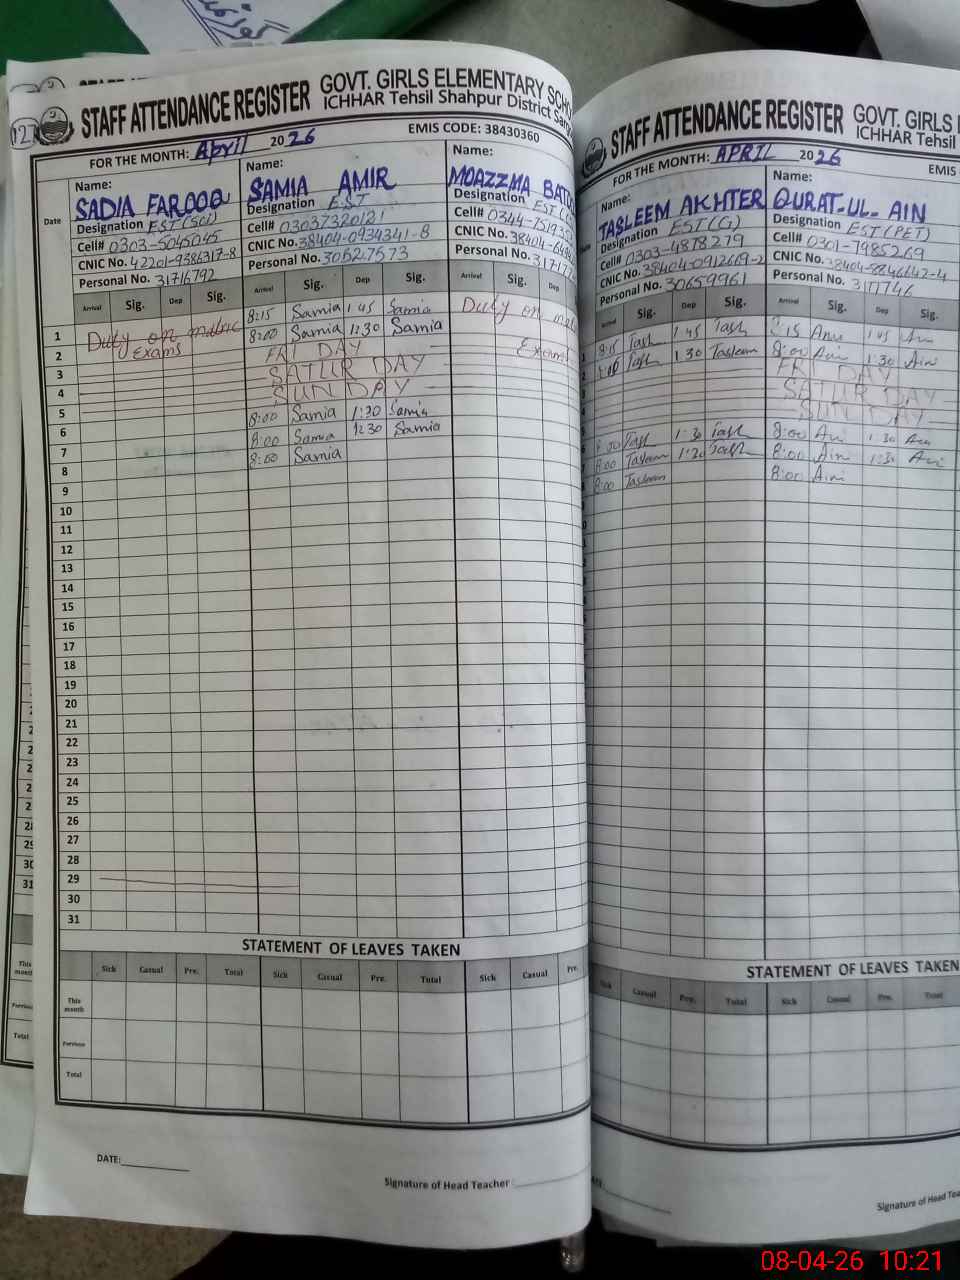 STAFF ATTENDANCE REGISTER GOVT. GIRLS ELEMENTARY SCHO
ICHHAR Tehsil Shahpur District Sarg
127
EMIS CODE: 38430360
FOR THE MONTH: April 2026
Date
Name:
SADIA FAROOQ
Designation EST (Sci)
Cell# 0303-5045045
CNIC No. 42201-9386317-8
Personal No. 31716792
Name:
SAMIA AMIR
Designation EST
Cell# 03037320121
CNIC No. 38404-0934341-8
Personal No. 30527573
Name:
MOAZZMA
Designation EST
Cell# 0344-
CNIC No. 38404-
Personal No.
Arrival Sig. Dep Sig. Arrival Sig. Dep Sig. Arrival Sig. Dep
1 8:15 Samia 1:45 Samia
Duty on matric Exams
Duty on
2 8:00 Samia 12:30 Samia
3 FRI DAY
4 SATUR DAY
5 SUN DAY
6 8:00 Samia 1:30 Samia
7 8:00 Samia 12:30 Samia
8 8:00 Samia
9
10
11
12
13
14
15
16
17
18
19
20
21
22
23
24
25
26
27
28
29
30
31
STATEMENT OF LEAVES TAKEN
Sick Casual Pre. Total Sick Casual Pre. Total Sick Casual Pre.
This month
Previous
Total
DATE:
Signature of Head Teacher
STAFF ATTENDANCE REGISTER GOVT. GIRLS E
ICHHAR Tehsil
FOR THE MONTH: APRIL 2026
EMIS
Name:
TASLEEM AKHTER
Designation EST(G)
Cell# 0303-4878279
CNIC No. 38404-0912669-2
Personal No. 30659961
Name:
QURAT-UL-AIN
Designation EST(PET)
Cell# 0301-7985269
CNIC No. 38404-8846642-4
Personal No.
Sig. Dep Sig. Arrival Sig. Dep Sig.
8:15 Tash 1:45 Tash 8:15 Ain 1:45 Ain
8:00 Tash 1:30 Tasleem 8:00 Ain 1:30 Ain
FRI DAY
SATUR DAY
SUN DAY
8:00 Tash 1:30 Tash 8:00 Ain 1:30 Ain
8:00 Tasleem 1:30 Tash 8:00 Ain 1:30 Ain
8:00 Tasleem 8:00 Ain
STATEMENT OF LEAVES TAKEN
Sick Casual Pre. Total Sick Casual Pre. Total
Signature of Head Tea
08-04-26 10:21